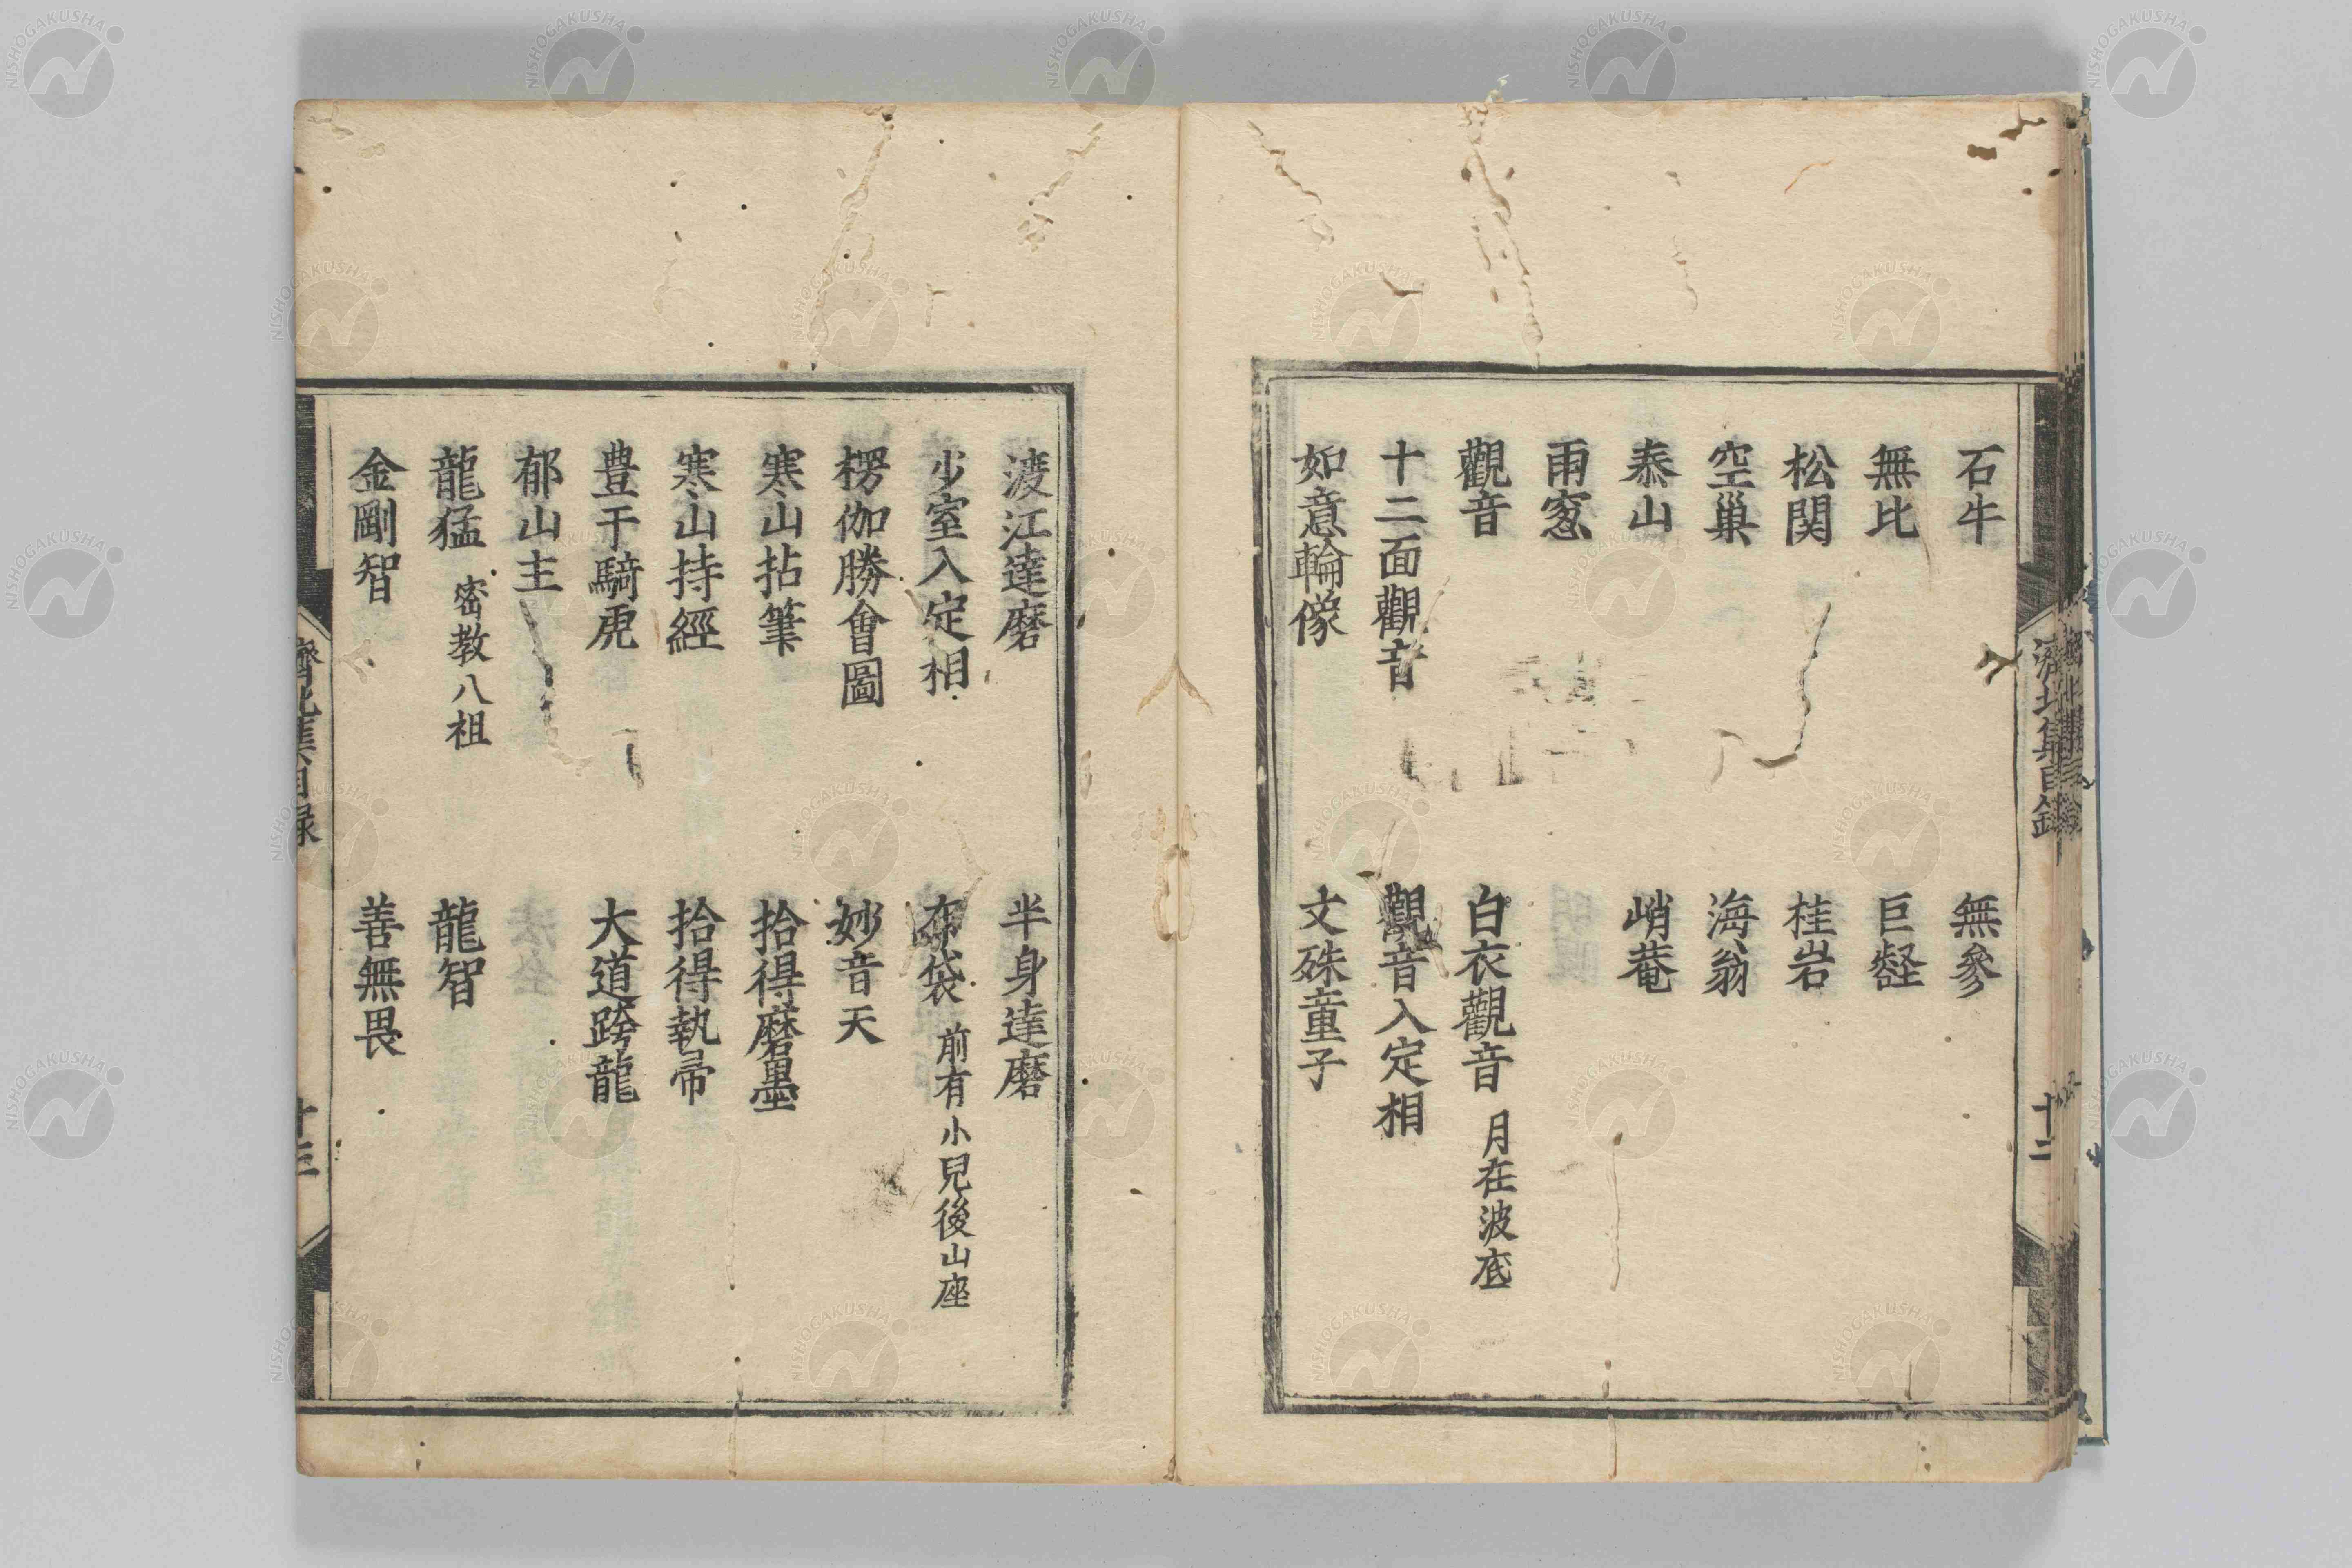 石牛　無參
無比　巨壑
松関　桂岩
空巢　海翁
泰山　峭菴
雨窓
觀音　白衣觀音　月在波底
十二面觀音　觀音入定相
如意輪像　文殊童子
渡江達磨　半身達磨
少室入定相　布袋　前有小兒後山座
楞伽勝會圖　妙音天
寒山拈筆　拾得磨墨
寒山持經　拾得執帚
豊干騎虎　大道跨龍
郁山主
龍猛　密教八祖　龍智
金剛智　善無畏
濟北集目録　十二
濟北集目録　十三
NISHOGAKUSHA